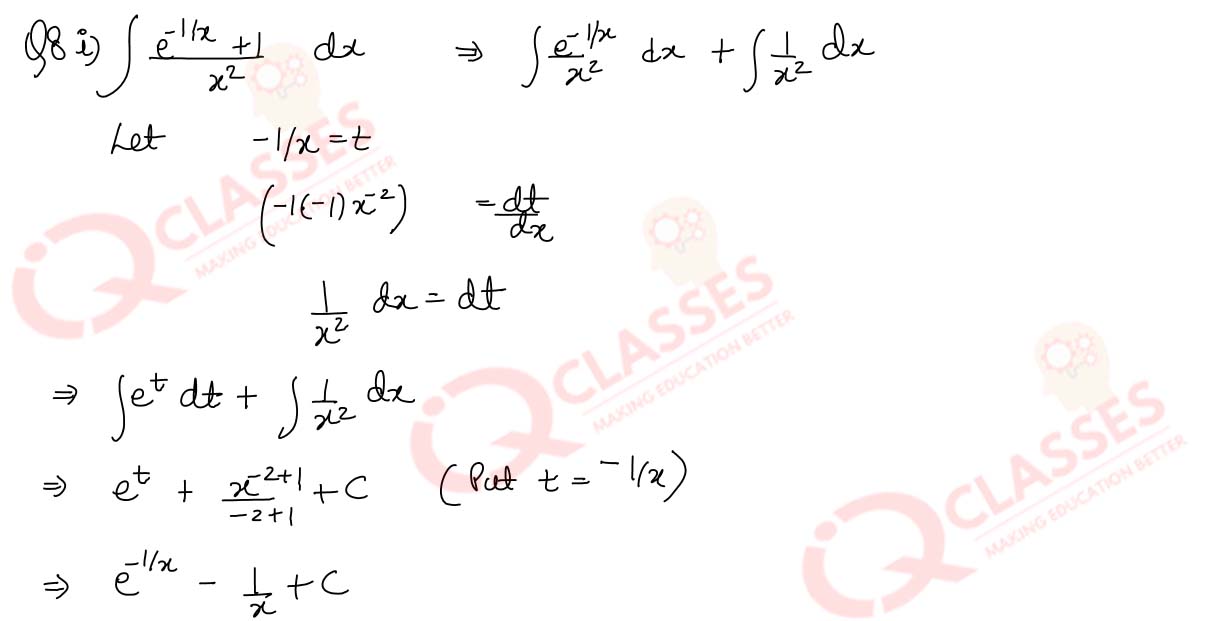 Q8 i) ∫ (e^{-1/x} + 1)/x² dx ⇒ ∫ e^{-1/x}/x² dx + ∫ 1/x² dx
Let -1/x = t
(-1(-1)x^{-2}) = dt/dx
1/x² dx = dt
⇒ ∫ e^t dt + ∫ 1/x² dx
⇒ e^t + x^{-2+1}/(-2+1) + C (Put t = -1/x)
⇒ e^{-1/x} - 1/x + C
iQ CLASSES
MAKING EDUCATION BETTER
iQ CLASSES
MAKING EDUCATION BETTER
iQ CLASSES
MAKING EDUCATION BETTER